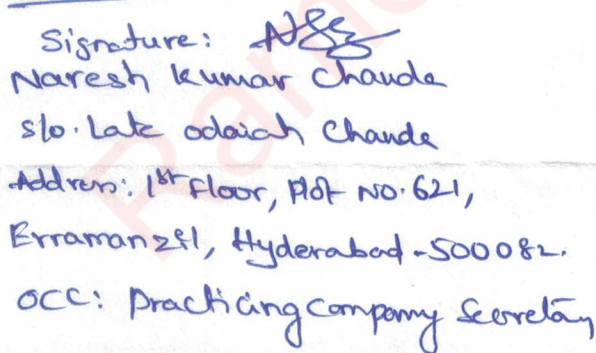 Signature:
Naresh Kumar Chanda
S/o. Late Odaiah Chanda
Address: 1st Floor, Plot No. 621,
Erramanzil, Hyderabad - 500082.
OCC: Practicing Company Secretary